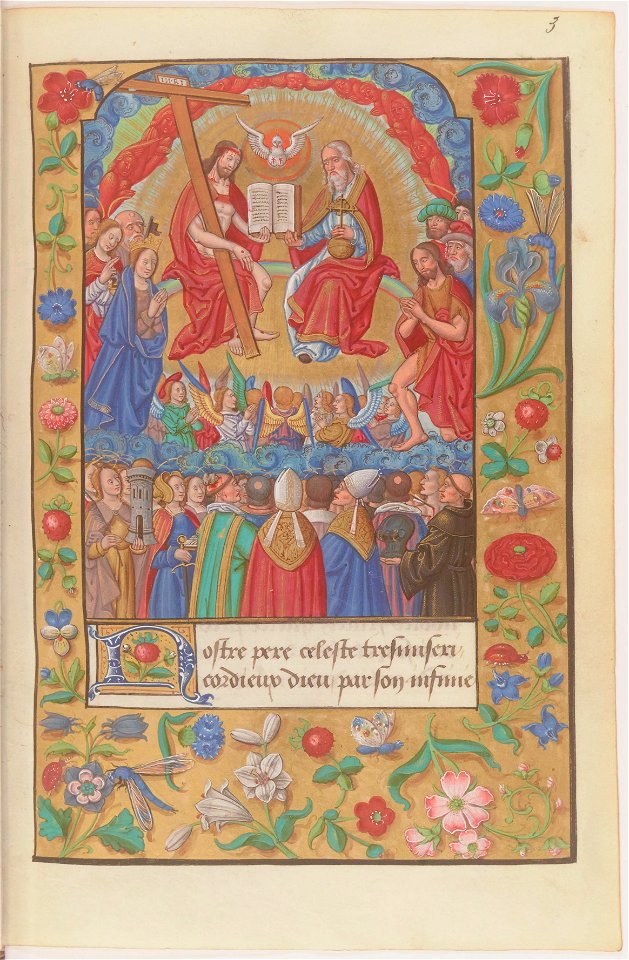 3
INRI
Nostre pere celeste tresmiseri,
cordieux dieu par son infinie